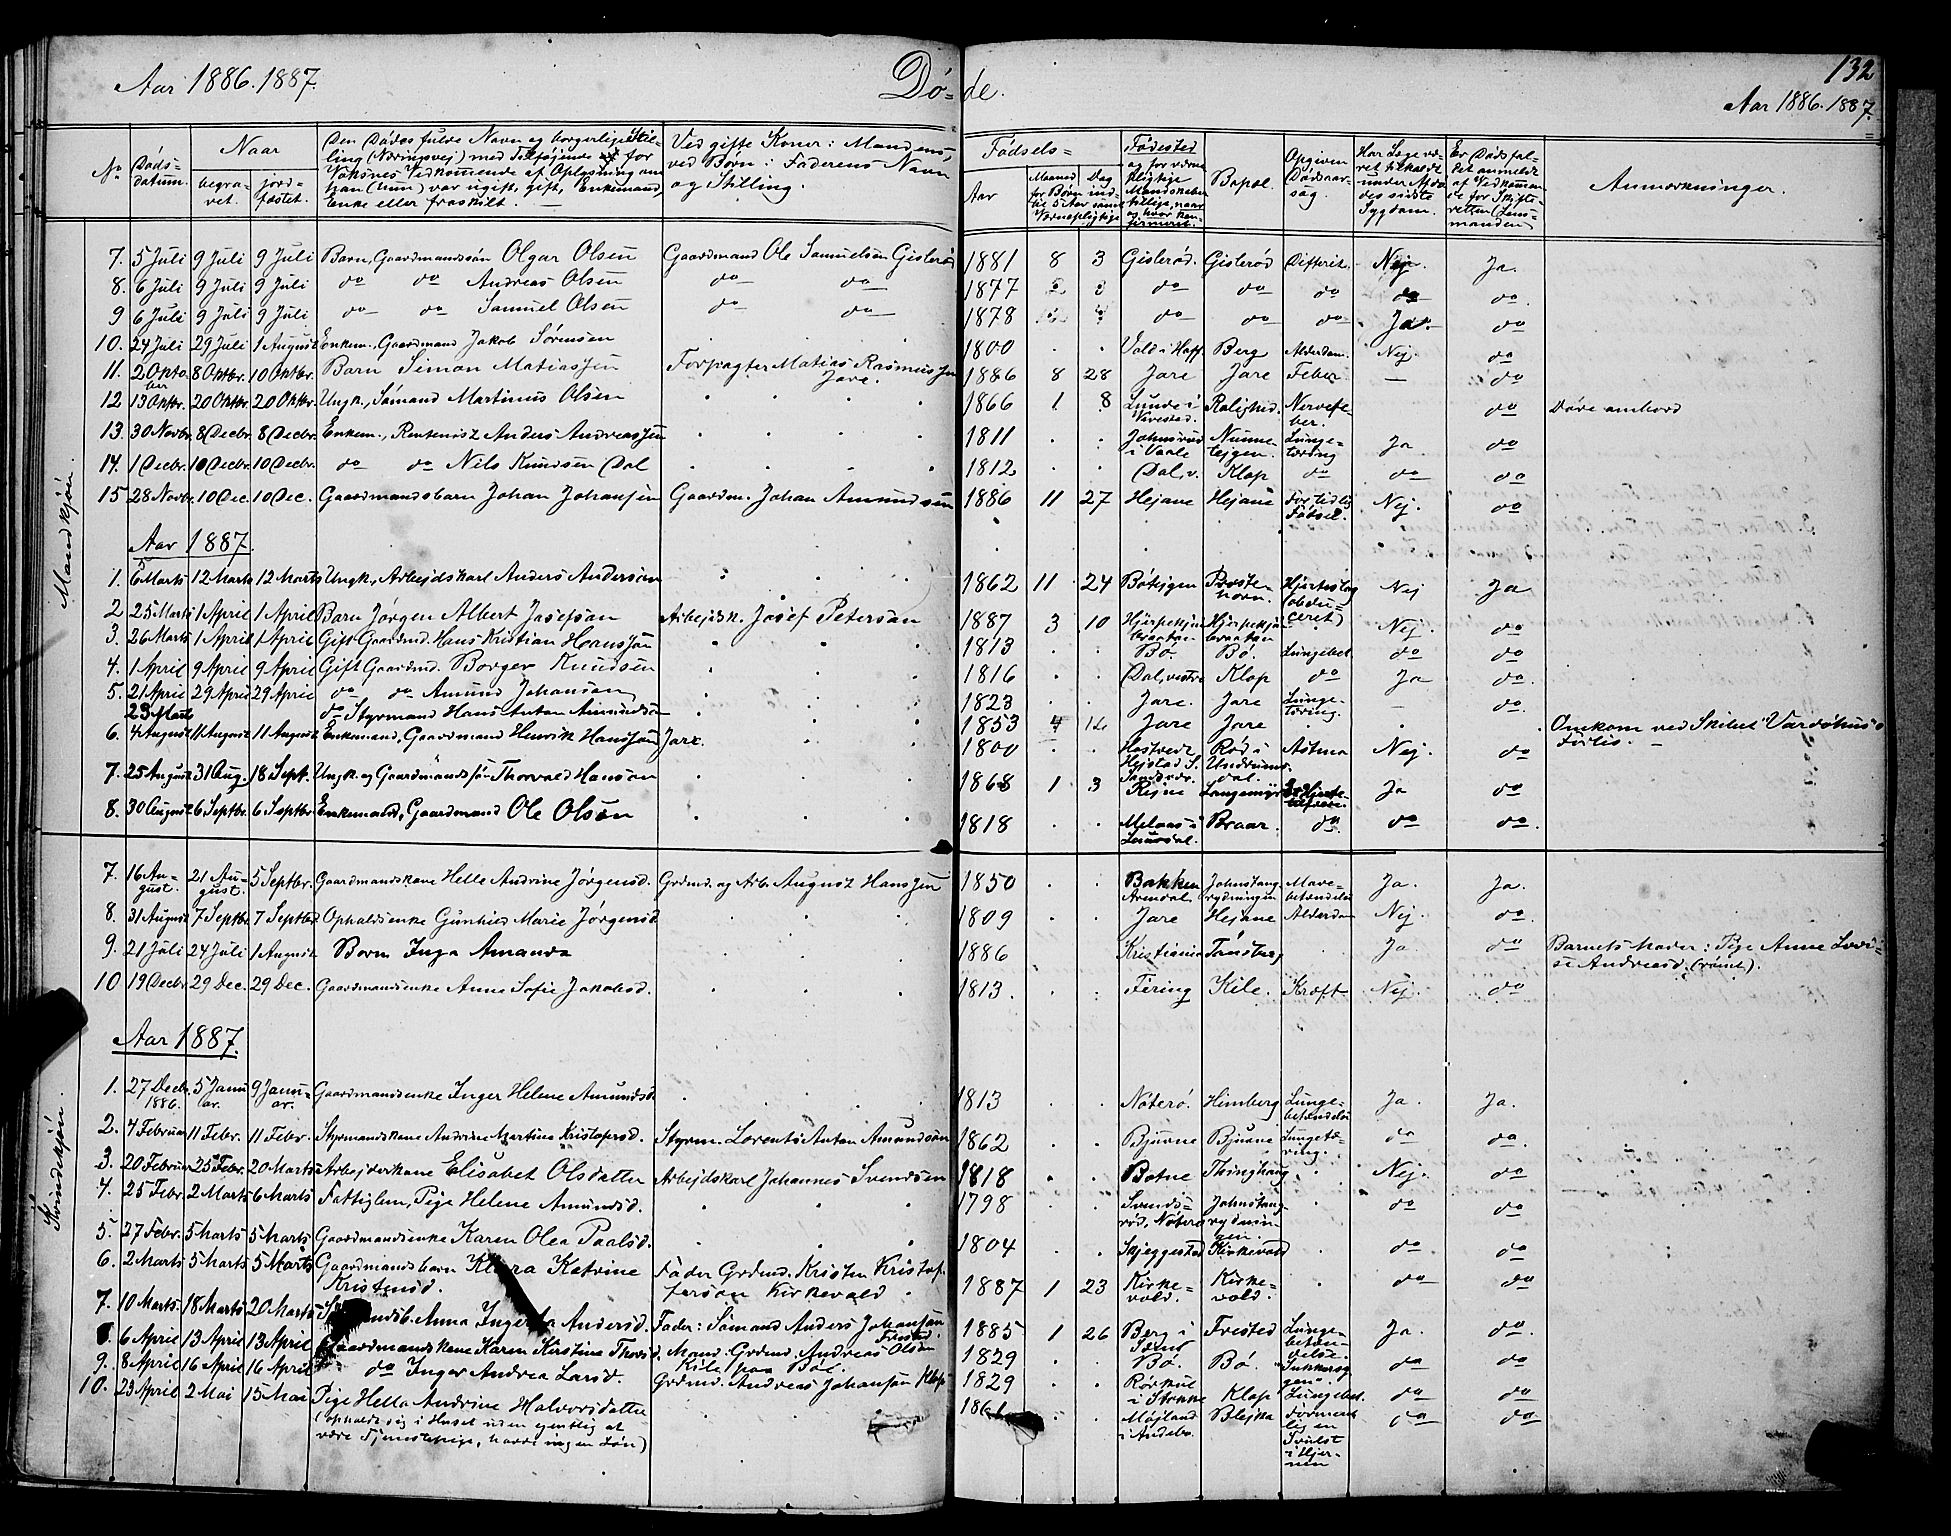 Aar 1886.1887.
Dö=
de.
132
Aar 1886.1887.
No
Döds-datum.
Naar
begra-vet.
jord-fæstet.
Den Dödes fulde Navn og borgerlige Stilling (Næringsvej) med Tilföjende for Voksnes Vedkomende af Oplysning om han (hun) var ugift, gift, Enkemand, Enke eller fraskilt.
Ved gifte Koner: Mandens, ved Börn: Faderens Navn og Stilling.
Födsels=
Aar
Maaned
Dag
Födested
Bopæl.
Opgiven Dödsaarsag.
Har Læge været tilkaldt under Afdödes sidste Sygdom.
Er Dödsfaldet anmeldt af Vedkommende for Skifteretten (Lensmanden)
Anmærkninger.
Mandkjön.
7. 5 Juli 9 Juli 9 Juli Barn, Gaardmandssön Olgar Olsen Gaardmand Ole Samuelsen Gislerö 1881 8 3 Gislerød. Gislerød Difterit. Nej. Ja.
8. 6 Juli 9 Juli 9 Juli do do Andreas Olsen do do 1877 do do do do do.
9 6 Juli 9 Juli 9 Juli do do Samuel Olsen do do 1878 do do do Ja. do
10. 24 Juli 29 Juli 1 August Enkem., Gaardmand Jakob Sörensen 1800 Vold i Hoff Berg Alderdom. Nej. do
11. 2 Oktober 8 Oktbr. 10 Oktbr. Barn Simon Matiassen Forpagter Matias Rasmussen Jare. 1886 8 28 Jare Jare Feber. — do
12 13 Oktbr. 20 Oktbr. 20 Oktbr. Ungk., Sömand Martinus Olsen 1866 1 8 Lunde i Rolighed. Nervefeber. do Döde ombord
13. 30 Novbr. 8 Decbr. 8 Decbr. Enkem., Rentenist Anders Andreassen 1811 i Vaale Lungetæring Ja do
14. 1 Decbr. 10 Decbr. 10 Decbr. do do Nils Knudsen Dal 1812 Dal, v. Klop do do do
15 28 Novbr. 10 Dec. 10 Dec. Gaardmandsbarn Johan Johansen Gaardm. Johan Amundsen 1886 11 27 Hejane Hejane For tidlig Födsel. Nej. do
Aar 1887.
1. 6 Marts 12 Marts 12 Marts Ungk., Arbejdskarl Anders Andersen 1862 11 24 Bötejgen Hjerteslag (obduceret) Nej Ja
2 25 Marts 1 April 1 April Barn Jörgen Albert Josefsen Arbejdsk. Josef Petersen 1887 3 10 Nej. do
3. 26 Marts 1 April 1 April Gift Gaardmd. Hans Kristian Hanssen 1813 Bö. Bö. Lungebet. do do
4. 1 April 9 April 9 April Gift Gaardmd. Borger Knudsen 1816 Dal, vestre Klop do Ja do.
5. 21 April 29 April 29 April do do Amund Johansen 1823 Jare. Jare Lungetæring. — do.
23 Marts do Styrmand Hans Anton Amundsen 1853 4 Jare Jare Omkom ved Skibet "Vardöhus"s Forlis. —
6. 4 August 11 August 11 August Enkemand, Gaardmand Henrik Hanssen Jare. 1800 Rød i Undrumsdal. Astma Nej. do
7. 25 August 31 Aug. 18 Sept. Ungk. og Gaardmandssön Thorvald Hansen 1868 1 3 Langemyr Ja do
8. 30 August 6 Septbr. 6 Septbr. Enkemand, Gaardmand Ole Olsen 1818 Braar. do. do do.
Kvindekjön.
7. 16 August. 21 August. 5 Septbr. Gaardmandskone Helle Andrine Jörgensd. Grdmd. og Arb. August Hanssen 1850 Bakken Arendal Johnstangrydningen Mavebetændelse Ja. Ja.
8. 31 August 7 Septbr. 7 Septbr Opholdsenke Gunhild Marie Jörgensd 1809 Jare Hejane Alderdom Nej. do.
9. 21 Juli 24 Juli 1 August Barn Inga Amanda 1886 Kristiania Tönsberg Ja. do Barnets Moder: Pige Anne Lovise Andreasd. (römt).
10 19 Decbr 29 Dec. 29 Dec. Gaardmandsenke Anne Sofie Jakobsd. 1813. Fering Kile. Kræft Nej. do
Aar 1887.
1. 27 Decbr. 1886. 5 Januar. 9 Januar. Gaardmandsenke Inger Helene Amundsd. 1813 Nöterö. Himberg Lungebetændelse Ja. Ja.
2. 4 Februar 11 Febr. 11 Febr. Styrmandskone Andrine Martine Kristofersd. Styrm. Lorents Anton Amundsen 1862 Bjuvne Bjuvne Lungetæring. do do.
3. 20 Februar 25 Febr. 20 Marts Arbejderkone Elisabet Olsdatter Arbejdskarl Johannes Svendsen 1818 Botne Thinghaug Nej. do
4. 25 Febr. 2 Marts 6 Marts Fattiglem, Pige Helene Amundsd. 1798 Svendsrød, Nöterö Johnstangrydningen. do do
5. 27 Febr. 5 Marts 5 Marts Gaardmandsenke Karen Olea Paalsd. 1804 Skjeggestad Kirkevold do do
6. 2 Marts 5 Marts 5 Marts Gaardmandsbarn Klara Katrine Kristensd. Fader Grdmd. Kristen Kristoffersen Kirkevold 1887 1 23 Kirkevold. Kirkevold. do do
7. 10 Marts. 18 Marts 20 Marts Anna Andersd. Fader: Sömand Anders Johansen Frested. 1885 1 26 Berg i Frested Lungebetændelse. Ja. do.
8. 6 April 13 April 13 April Gaardmandskone Karen Kirstine Thorsd. Mand: Grdmd. Andreas Olsen Kile paa Böe. 1829 Bö. Bö. "Sukkersygen". do do
9. 8 April 16 April 16 April do Inger Andrea Larsd. Grdmd. Andreas Johansen Klop 1829 i Stokke Klop Lungebet. do do
10. 23 April 2 Mai 15 Mai Pige Hella Andrine Halvorsdatter (opholdt sig i Huset uden egentlig at være Tjenestepige, havde ingen Lön) Möjland i Andebo. Blejka Formentlig en Svulst i Hjernen do do